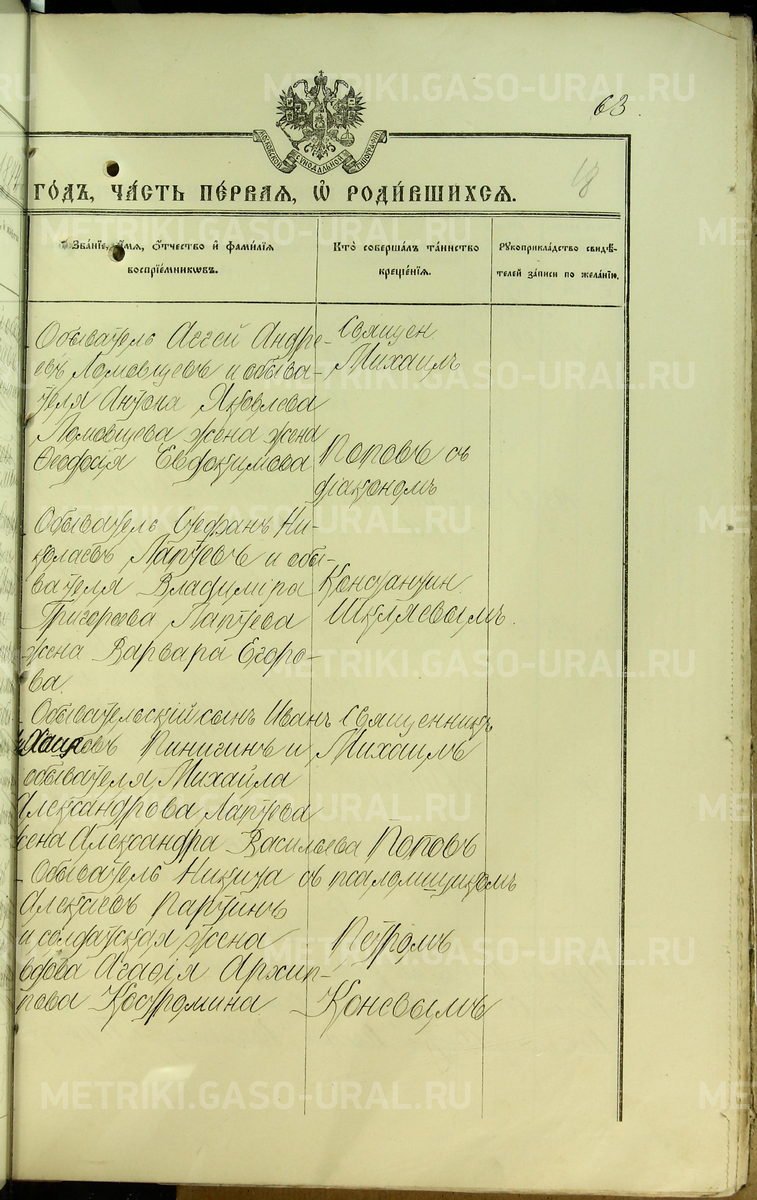 63.
18
МОСКОВСКОЙ СѴНОДАЛЬНОЙ ТИПОГРАФІИ
ГО́ДЪ, ЧА́СТЬ ПЕ́РВАЯ, Ѡ РОДИ́ВШИХСѦ.
Зва́нїе, и́мѧ, о́тчество и҆ фами́лїѧ
воспрїе́мникѡвъ.
Кто̀ соверша́лъ та́инство
креще́нїѧ.
Рꙋкоприкла́дство свидѣ́-
телей за́писи по жела́нїю.
Обыватель Аггей Андре-
евъ Ломовцевъ и обыва-
теля Антона Яковлева
Ломовцева жена жена
Ѳеодосія Евдокимова
Священ.
Михаилъ
Поповъ съ
діакономъ
Обыватель Стефанъ Ни-
колаевъ Лаптевъ и обы-
вателя Владиміра
Григорьева Лаптева
жена Варвара Егоро-
ва.
Константин.
Шкляевымъ.
Обывательскій сынъ Иванъ
Пинигинъ и
обывателя Михаила
Александрова Лаптева
жена Александра Васильева
Священникъ
Михаилъ
Поповъ
Обыватель Никита
Алексѣевъ Партинъ
и солдатская жена
вдова Агафія Архип-
пова Костромина
съ псаломщикомъ
Петромъ
Коневымъ
METRIKI.GASO-URAL.RU